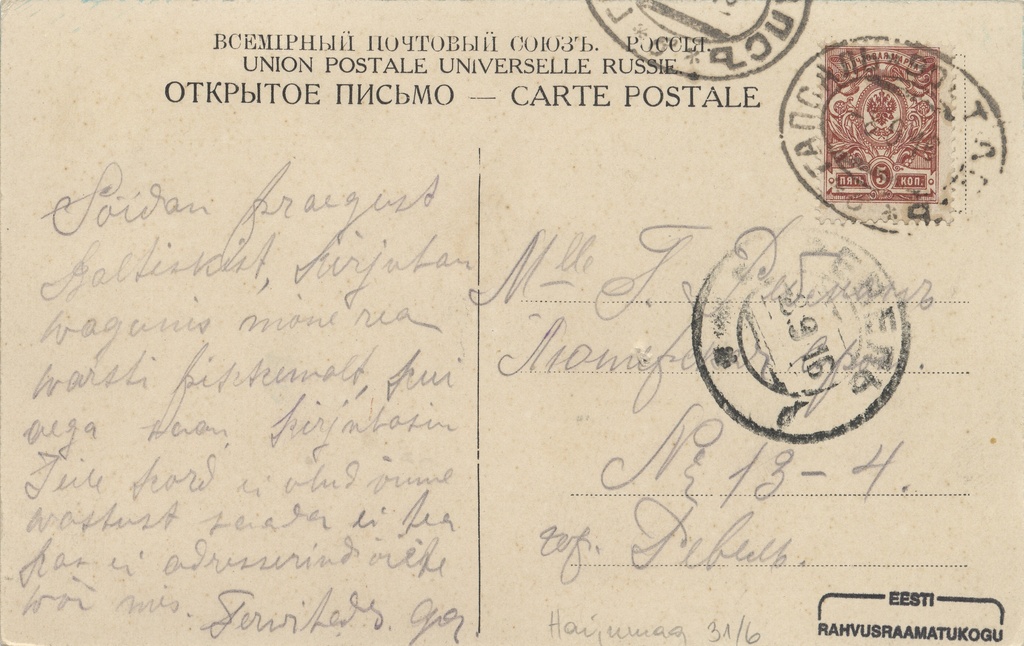 ВСЕМІРНЫЙ ПОЧТОВЫЙ СОЮЗЪ. РОССІЯ.
UNION POSTALE UNIVERSELLE RUSSIE
ОТКРЫТОЕ ПИСЬМО — CARTE POSTALE
ПЯТЬ 5 КОП.
Sõidan praegust
Baltiskist, kirjutan
wagunis mõne rea
warsti pikkemalt, kui
aega saan, kirjutasin
Teile kord ei olnud õnne
wastust saada ei tea
kas ei adresserind õiete
wõi mis. Terwitades
Mlle
№ 13-4.
гор. Ревель.
31/6
EESTI
RAHVUSRAAMATUKOGU